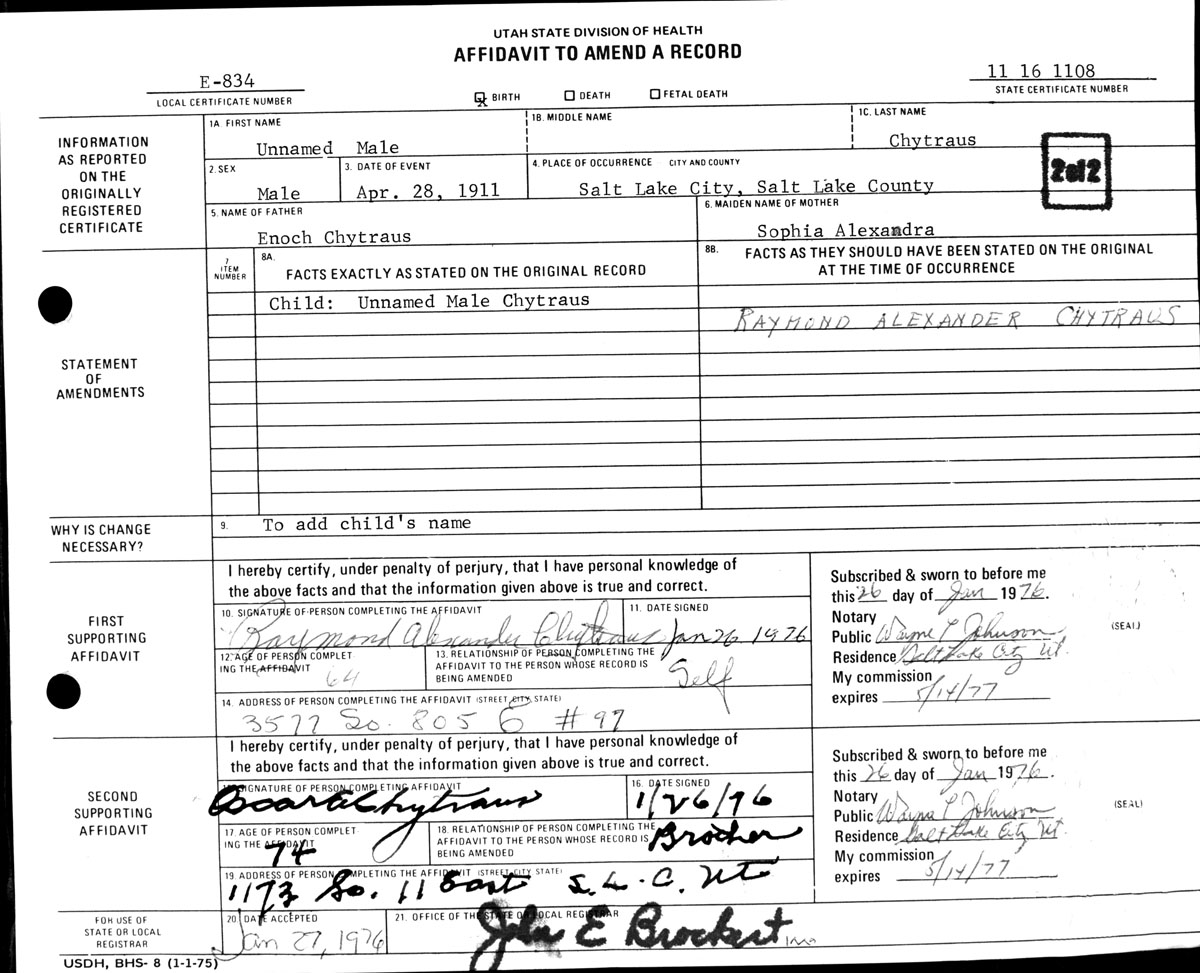 UTAH STATE DIVISION OF HEALTH
AFFIDAVIT TO AMEND A RECORD
E-834
LOCAL CERTIFICATE NUMBER
BIRTH
DEATH
FETAL DEATH
11 16 1108
STATE CERTIFICATE NUMBER
INFORMATION
AS REPORTED
ON THE
ORIGINALLY
REGISTERED
CERTIFICATE
1A. FIRST NAME
1B. MIDDLE NAME
1C. LAST NAME
Unnamed Male
Chytraus
2. SEX
3. DATE OF EVENT
4. PLACE OF OCCURRENCE CITY AND COUNTY
Male
Apr. 28, 1911
Salt Lake City, Salt Lake County
2 of 2
5. NAME OF FATHER
6. MAIDEN NAME OF MOTHER
Enoch Chytraus
Sophia Alexandra
STATEMENT
OF
AMENDMENTS
7
ITEM
NUMBER
8A.
FACTS EXACTLY AS STATED ON THE ORIGINAL RECORD
8B.
FACTS AS THEY SHOULD HAVE BEEN STATED ON THE ORIGINAL
AT THE TIME OF OCCURRENCE
Child: Unnamed Male Chytraus
RAYMOND ALEXANDER CHYTRAUS
WHY IS CHANGE
NECESSARY?
9. To add child's name
FIRST
SUPPORTING
AFFIDAVIT
I hereby certify, under penalty of perjury, that I have personal knowledge of
the above facts and that the information given above is true and correct.
10. SIGNATURE OF PERSON COMPLETING THE AFFIDAVIT
11. DATE SIGNED
Raymond Alexander Chytraus
Jan 26 1976
12. AGE OF PERSON COMPLET
ING THE AFFIDAVIT
64
13. RELATIONSHIP OF PERSON COMPLETING THE
AFFIDAVIT TO THE PERSON WHOSE RECORD IS
BEING AMENDED
Self
14. ADDRESS OF PERSON COMPLETING THE AFFIDAVIT (STREET, CITY, STATE)
3577 So. 805 E # 97
Subscribed & sworn to before me
this 26 day of Jan 1976.
Notary
Public Wayne L Johnson
Residence Salt Lake City Ut.
My commission
expires 5/14/77
(SEAL)
SECOND
SUPPORTING
AFFIDAVIT
I hereby certify, under penalty of perjury, that I have personal knowledge of
the above facts and that the information given above is true and correct.
15. SIGNATURE OF PERSON COMPLETING AFFIDAVIT
16. DATE SIGNED
Oscar E Chytraus
1/26/76
17. AGE OF PERSON COMPLET
ING THE AFFIDAVIT
74
18. RELATIONSHIP OF PERSON COMPLETING THE
AFFIDAVIT TO THE PERSON WHOSE RECORD IS
BEING AMENDED
Brother
19. ADDRESS OF PERSON COMPLETING THE AFFIDAVIT (STREET, CITY, STATE)
1173 So. 11 East S. L. C. Ut
Subscribed & sworn to before me
this 26 day of Jan 1976.
Notary
Public Wayne L Johnson
Residence Salt Lake City Ut.
My commission
expires 5/14/77
(SEAL)
FOR USE OF
STATE OR LOCAL
REGISTRAR
20. DATE ACCEPTED
Jan 27, 1976
21. OFFICE OF THE STATE OR LOCAL REGISTRAR
John E Brockert
USDH, BHS- 8 (1-1-75)